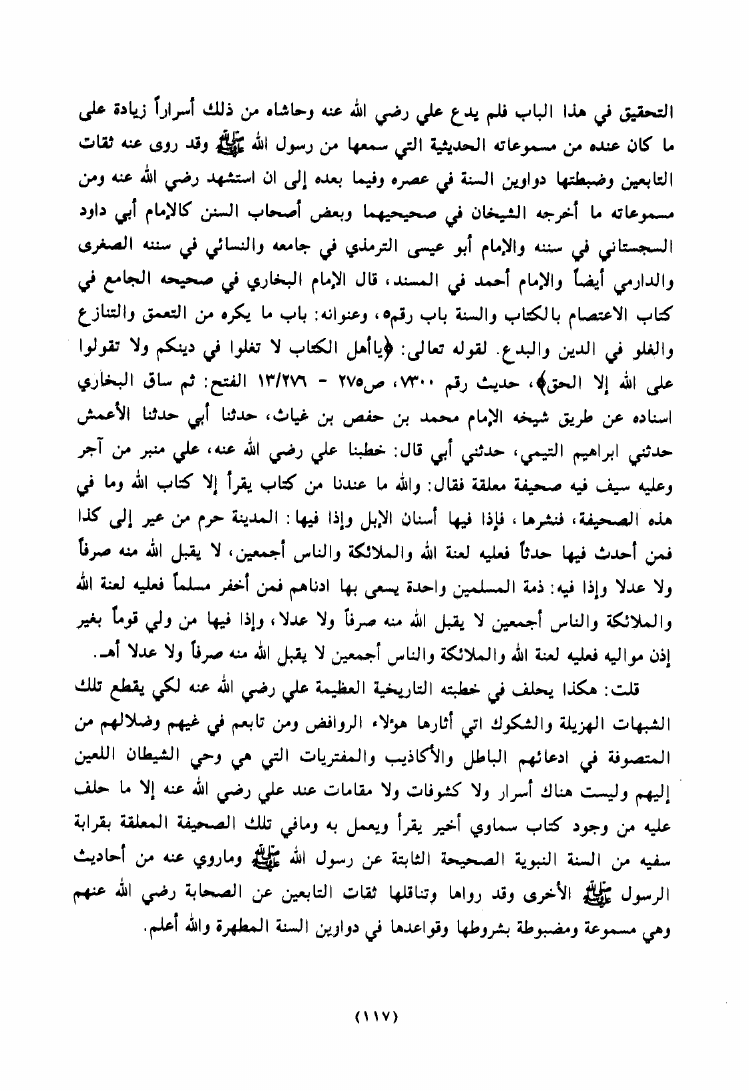 التحقيق في هذا الباب فلم يدع علي رضي الله عنه وحاشاه من ذلك أسراراً زيادة على
ما كان عنده من مسموعاته الحديثية التي سمعها من رسول الله ﷺ وقد روى عنه ثقات
التابعين وضبطتها دواوين السنة في عصره وفيما بعده إلى ان استشهد رضي الله عنه ومن
مسموعاته ما أخرجه الشيخان في صحيحيهما وبعض أصحاب السنن كالإمام أبي داود
السجستاني في سننه والإمام أبو عيسى الترمذي في جامعه والنسائي في سننه الصغرى
والدارمي أيضاً والإمام أحمد في المسند، قال الإمام البخاري في صحيحه الجامع في
كتاب الاعتصام بالكتاب والسنة باب رقم٥، وعنوانه: باب ما يكره من التعمق والتنازع
والغلو في الدين والبدع. لقوله تعالى: ﴿ياأهل الكتاب لا تغلوا في دينكم ولا تقولوا
على الله إلا الحق﴾، حديث رقم ٧٣٠٠، ص٢٧٥ - ١٣/٢٧٦ الفتح: ثم ساق البخاري
اسناده عن طريق شيخه الإمام محمد بن حفص بن غياث، حدثنا أبي حدثنا الأعمش
حدثني ابراهيم التيمي، حدثني أبي قال: خطبنا علي رضي الله عنه، علي منبر من آجر
وعليه سيف فيه صحيفة معلقة فقال: والله ما عندنا من كتاب يقرأ إلا كتاب الله وما في
هذه الصحيفة، فنشرها، فإذا فيها أسنان الإبل وإذا فيها: المدينة حرم من عير إلى كذا
فمن أحدث فيها حدثاً فعليه لعنة الله والملائكة والناس أجمعين، لا يقبل الله منه صرفاً
ولا عدلا وإذا فيه: ذمة المسلمين واحدة يسعى بها ادناهم فمن أخفر مسلماً فعليه لعنة الله
والملائكة والناس أجمعين لا يقبل الله منه صرفاً ولا عدلا، وإذا فيها من ولي قوماً بغير
إذن مواليه فعليه لعنة الله والملائكة والناس أجمعين لا يقبل الله منه صرفاً ولا عدلا أهـ.
قلت: هكذا يحلف في خطبته التاريخية العظيمة علي رضي الله عنه لكي يقطع تلك
الشبهات الهزيلة والشكوك اتي أثارها هؤلاء الروافض ومن تابعم في غيهم وضلالهم من
المتصوفة في ادعائهم الباطل والأكاذيب والمفتريات التي هي وحي الشيطان اللعين
إليهم وليست هناك أسرار ولا كشوفات ولا مقامات عند علي رضي الله عنه إلا ما حلف
عليه من وجود كتاب سماوي أخير يقرأ ويعمل به ومافي تلك الصحيفة المعلقة بقرابة
سفيه من السنة النبوية الصحيحة الثابتة عن رسول الله ﷺ وماروي عنه من أحاديث
الرسول ﷺ الأخرى وقد رواها وتناقلها ثقات التابعين عن الصحابة رضي الله عنهم
وهي مسموعة ومضبوطة بشروطها وقواعدها في دواوين السنة المطهرة والله أعلم.
(١١٧)